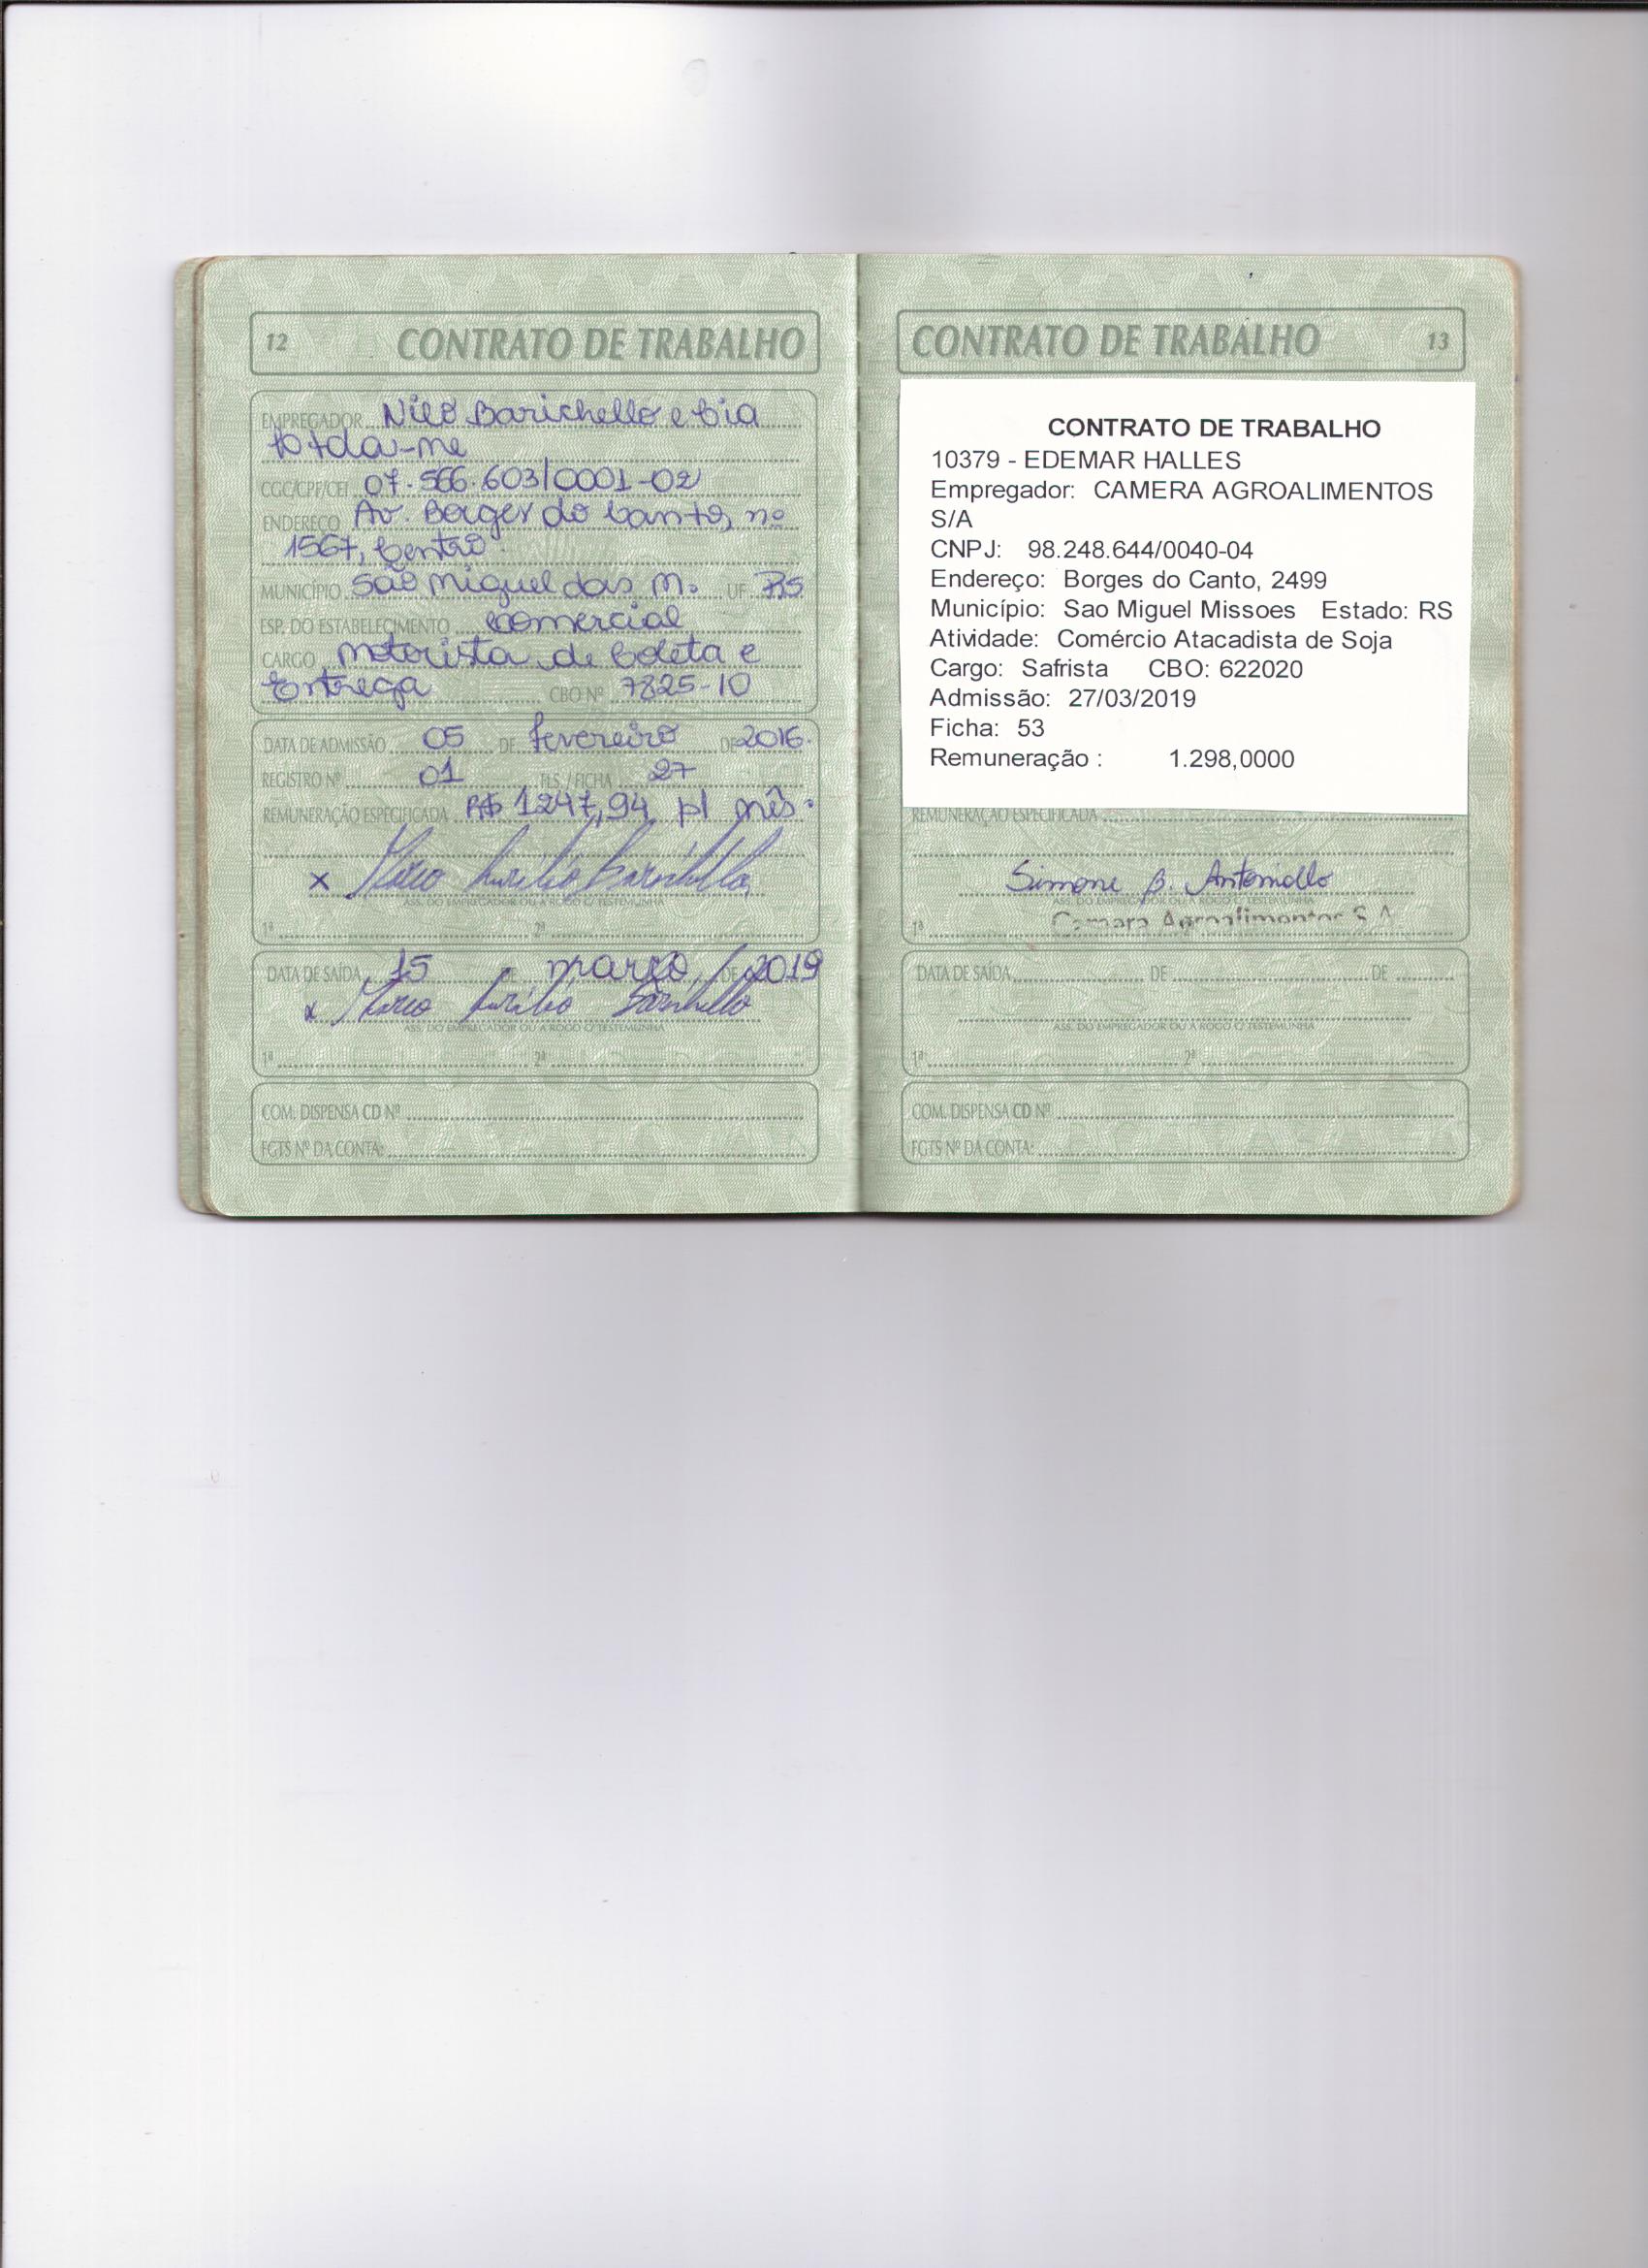 12 CONTRATO DE TRABALHO
EMPREGADOR Nilo Barichello e Cia
Ltda-me
CGC/CPF/CEI 07.566.603/0001-02
ENDEREÇO Av. Borges do Canto, nº
1567, Centro.
MUNICÍPIO São Miguel das M. UF RS
ESP. DO ESTABELECIMENTO comercial
CARGO motorista de Coleta e
Entrega CBO Nº 7825-10
DATA DE ADMISSÃO 05 DE fevereiro DE 2016.
REGISTRO Nº 01 FLS. / FICHA 27
REMUNERAÇÃO ESPECIFICADA R$ 1247,94 p/ mês.
x Barichello
ASS. DO EMPREGADOR OU A ROGO C/ TESTEMUNHA
1ª 2ª
DATA DE SAÍDA 15 DE março DE 2019
x Barichello
ASS. DO EMPREGADOR OU A ROGO C/ TESTEMUNHA
1ª 2ª
COM. DISPENSA CD Nº
FGTS Nº DA CONTA:
CONTRATO DE TRABALHO 13
CONTRATO DE TRABALHO
10379 - EDEMAR HALLES
Empregador: CAMERA AGROALIMENTOS
S/A
CNPJ: 98.248.644/0040-04
Endereço: Borges do Canto, 2499
Município: Sao Miguel Missoes Estado: RS
Atividade: Comércio Atacadista de Soja
Cargo: Safrista CBO: 622020
Admissão: 27/03/2019
Ficha: 53
Remuneração : 1.298,0000
REMUNERAÇÃO ESPECIFICADA
Simone B. Antoniollo
ASS. DO EMPREGADOR OU A ROGO C/ TESTEMUNHA
1ª Camera Agroalimentos S.A
DATA DE SAÍDA DE DE
ASS. DO EMPREGADOR OU A ROGO C/ TESTEMUNHA
1ª 2ª
COM. DISPENSA CD Nº
FGTS Nº DA CONTA: